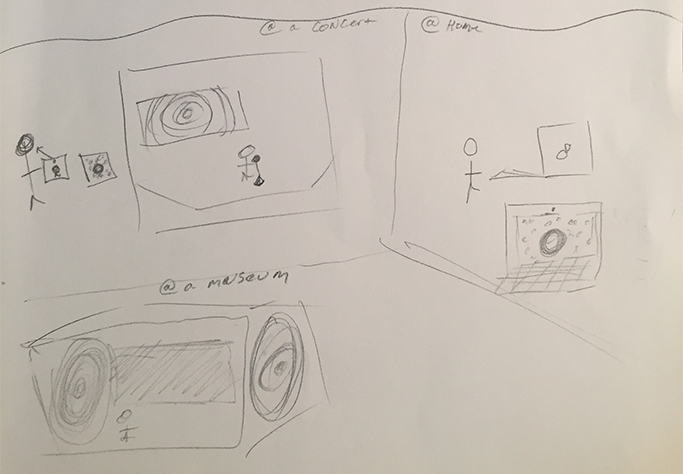 @ a concert
@ Home
@ a museum